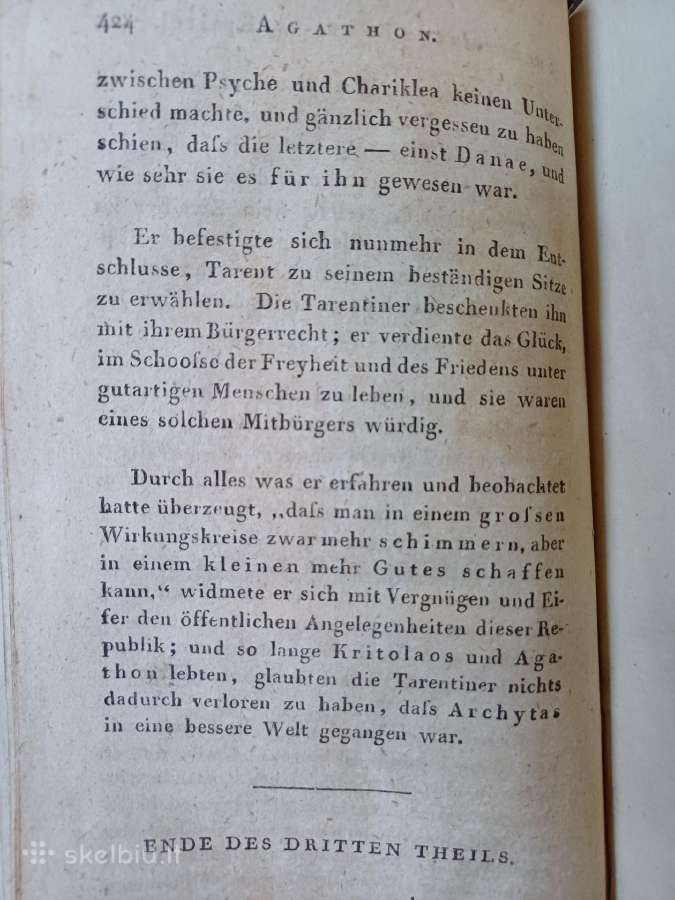 424 AGATHON.
zwischen Psyche und Chariklea keinen Unter-
schied machte, und gänzlich vergessen zu haben
schien, daſs die letztere — einst Danae, und
wie sehr sie es für ihn gewesen war.
Er befestigte sich nunmehr in dem Ent-
schlusse, Tarent zu seinem beständigen Sitze
zu erwählen. Die Tarentiner beschenkten ihn
mit ihrem Bürgerrecht; er verdiente das Glück,
im Schooſse der Freyheit und des Friedens unter
gutartigen Menschen zu leben, und sie waren
eines solchen Mitbürgers würdig.
Durch alles was er erfahren und beobachtet
hatte überzeugt, „daſs man in einem groſsen
Wirkungskreise zwar mehr schimmern, aber
in einem kleinen mehr Gutes schaffen
kann,“ widmete er sich mit Vergnügen und Ei-
fer den öffentlichen Angelegenheiten dieser Re-
publik; und so lange Kritolaos und Aga-
thon lebten, glaubten die Tarentiner nichts
dadurch verloren zu haben, daſs Archytas
in eine bessere Welt gegangen war.
ENDE DES DRITTEN THEILS.
skelbiu.lt